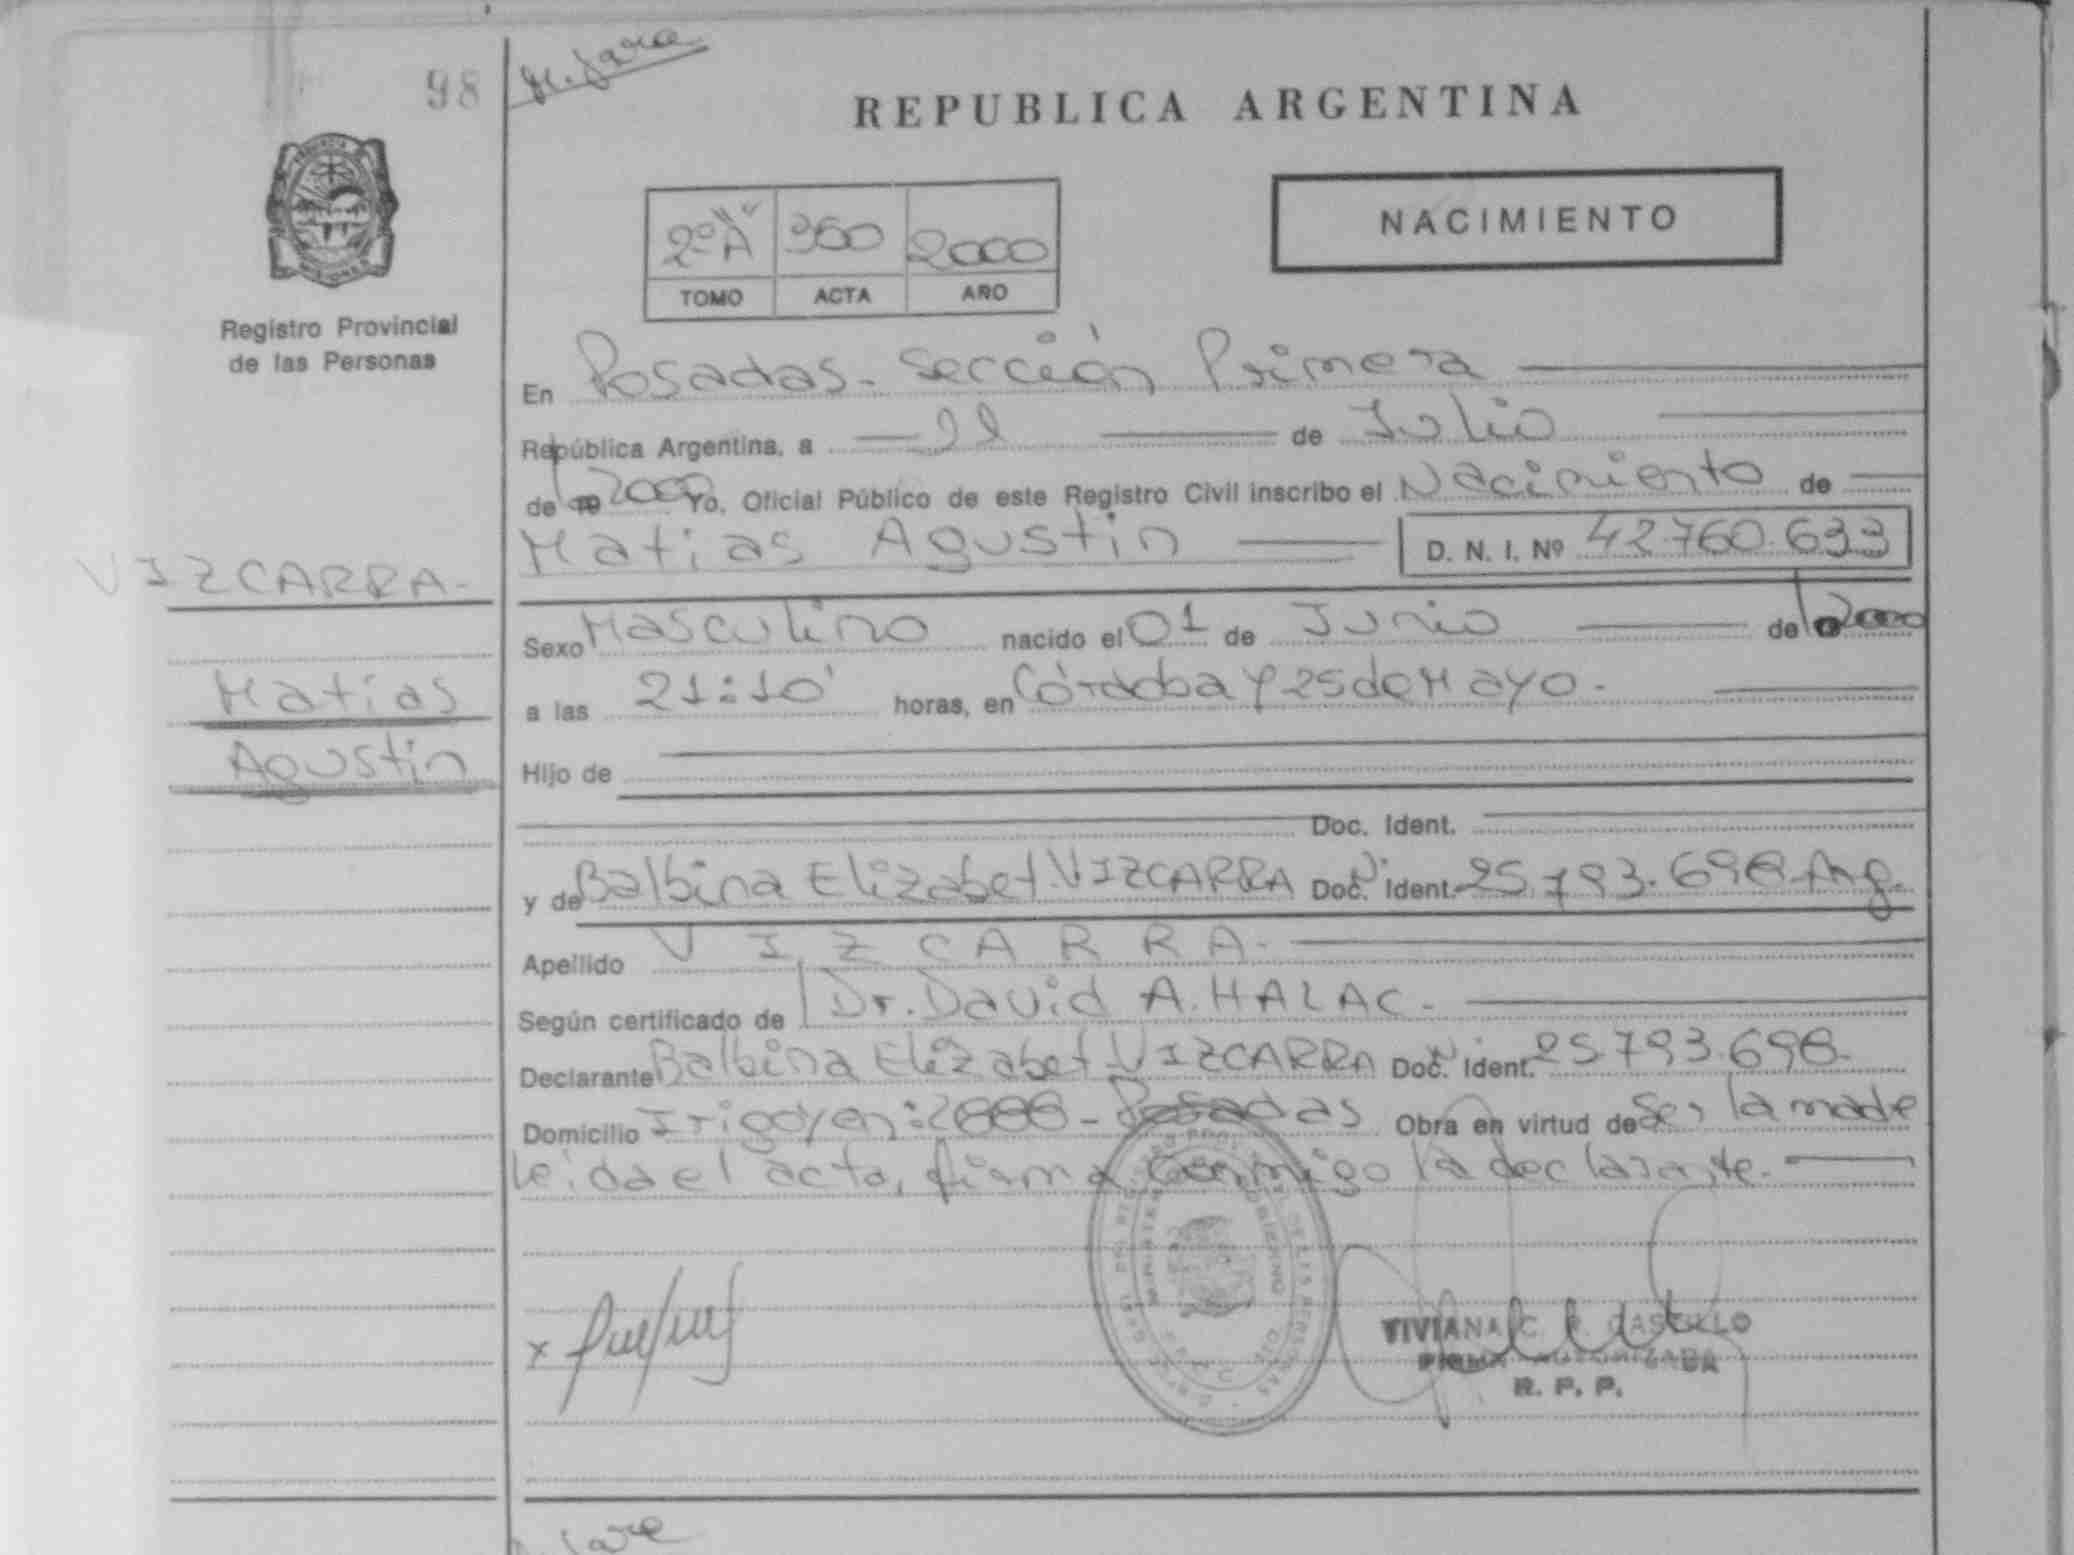 98
REPUBLICA ARGENTINA
2º "A" 360 2000
TOMO ACTA AÑO
NACIMIENTO
Registro Provincial
de las Personas
En Posadas - Sección Primera
República Argentina, a 11 de Julio
de 19 2000 Yo, Oficial Público de este Registro Civil inscribo el Nacimiento de
Matias Agustin D. N. I. Nº 42.760.633
VIZCARRA-
Matias
Agustin
Sexo Masculino nacido el 01 de Junio de 2000
a las 21:10' horas, en Córdoba y 25 de Mayo.-
Hijo de
Doc. Ident.
y de Balbina Elizabet VIZCARRA Doc. Ident. 25.793.698 Arg.
Apellido VIZCARRA-
Según certificado de Dr. David A. HALAC-
Declarante Balbina Elizabet VIZCARRA Doc. Ident. 25.793.698-
Domicilio Irigoyen: - Posadas Obra en virtud de Ser la madre
leida el acta, firma conmigo la declarante.-
x
VIVIANA C. R. CASTILLO
FIRMA AUTORIZADA
R. P. P.